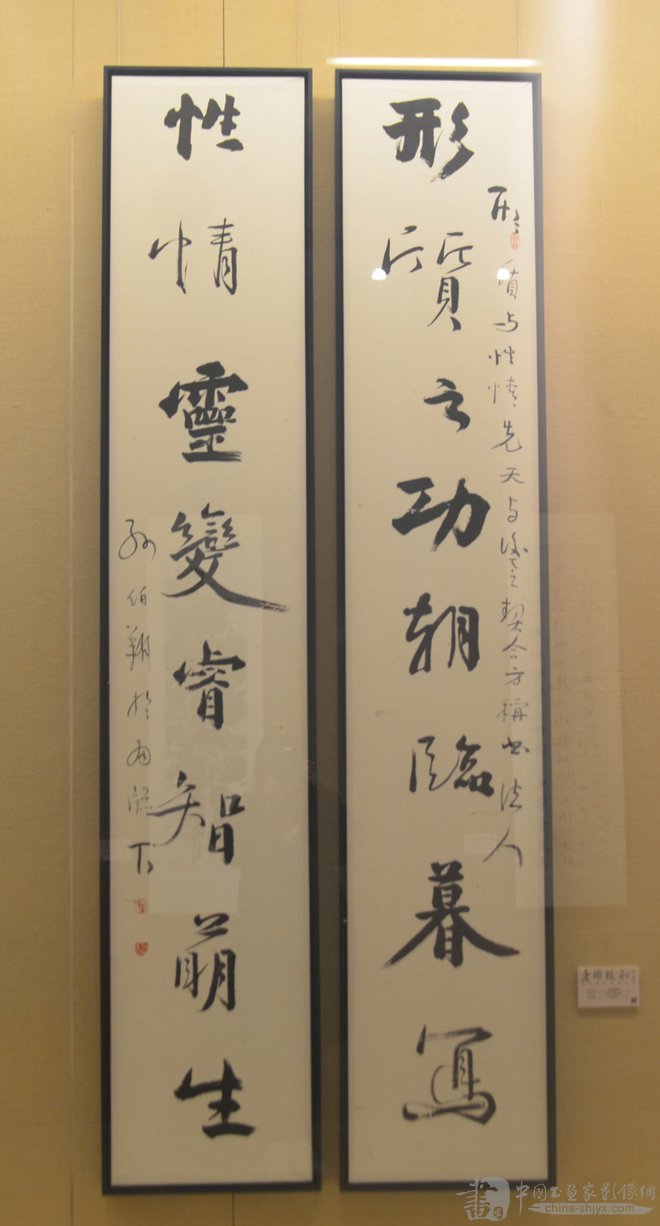 形質之功朝臨暮寫
形質与性情先天与後之契合方稱书法人
性情靈變睿智萌生
孙伯翔於下
畫
中国书画家影像網
china-shjyx.com